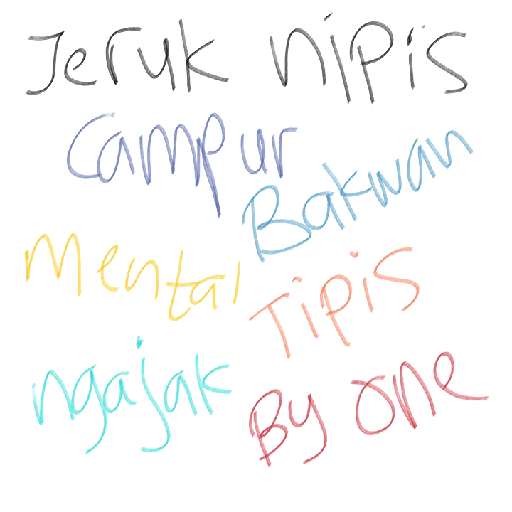 Jeruk nipis
Campur
Bakwan
Mental
Tipis
ngajak
By one